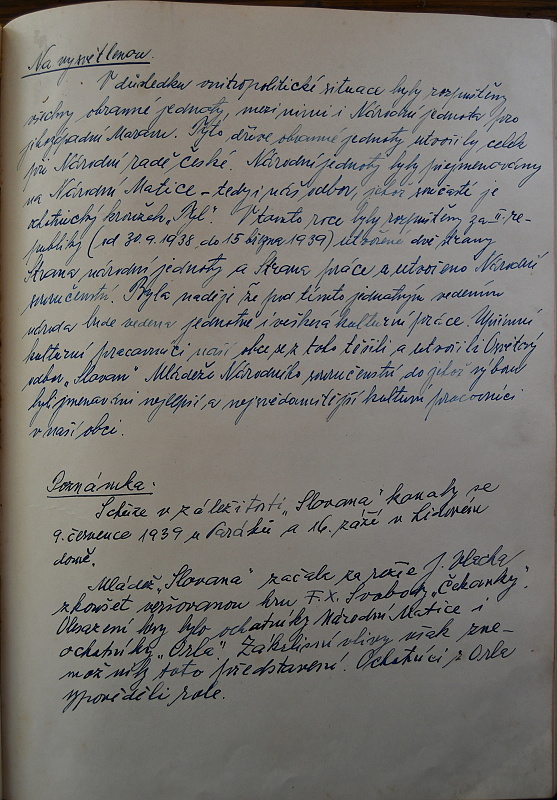 Na vysvětlenou.
V důsledku vnitropolitické situace byly rozpuštěny
všechny obranné jednoty, mezi nimi i Národní jednota pro
jihozápadní Moravu. Tyto dříve obranné jednoty utvořily celek
při Národní radě české. Národní jednoty byly přejmenovány
na Národní Matice – tedy i náš odbor, jehož součástí je
ochotnický kroužek „Tyl". V tomto roce byly rozpuštěny za II. re-
publiky (od 30.9.1938 do 15 března 1939) utvořené dvě strany
Strana národní jednoty a Strana práce a utvořeno Národní
souručenství. Byla naděje že pod tímto jednotným vedením
národa bude vedena jednotně i veškerá kulturní práce. Upřímní
kulturní pracovníci naší obce se z toho těšili a utvořili Osvětový
odbor „Slovan" Mládeže Národního souručenství do jehož výboru
byli jmenováni nejlepší a nejsvědomitější kulturní pracovníci
v naší obci.
Poznámka.
Schůze v záležitosti „Slovana" konaly se
9. července 1939 u Paráků a 16. září v Lidovém
domě.
Mládež „Slovana" začala za režie J. Vlacha
zkoušet veršovanou hru F. X. Svobody „Čekanky".
Obsazení hry bylo ochotníky Národní Matice i
ochotníky „Orla". Zákulisní vlivy však zne-
možnily toto představení. Ochotníci z Orla
vypověděli role.